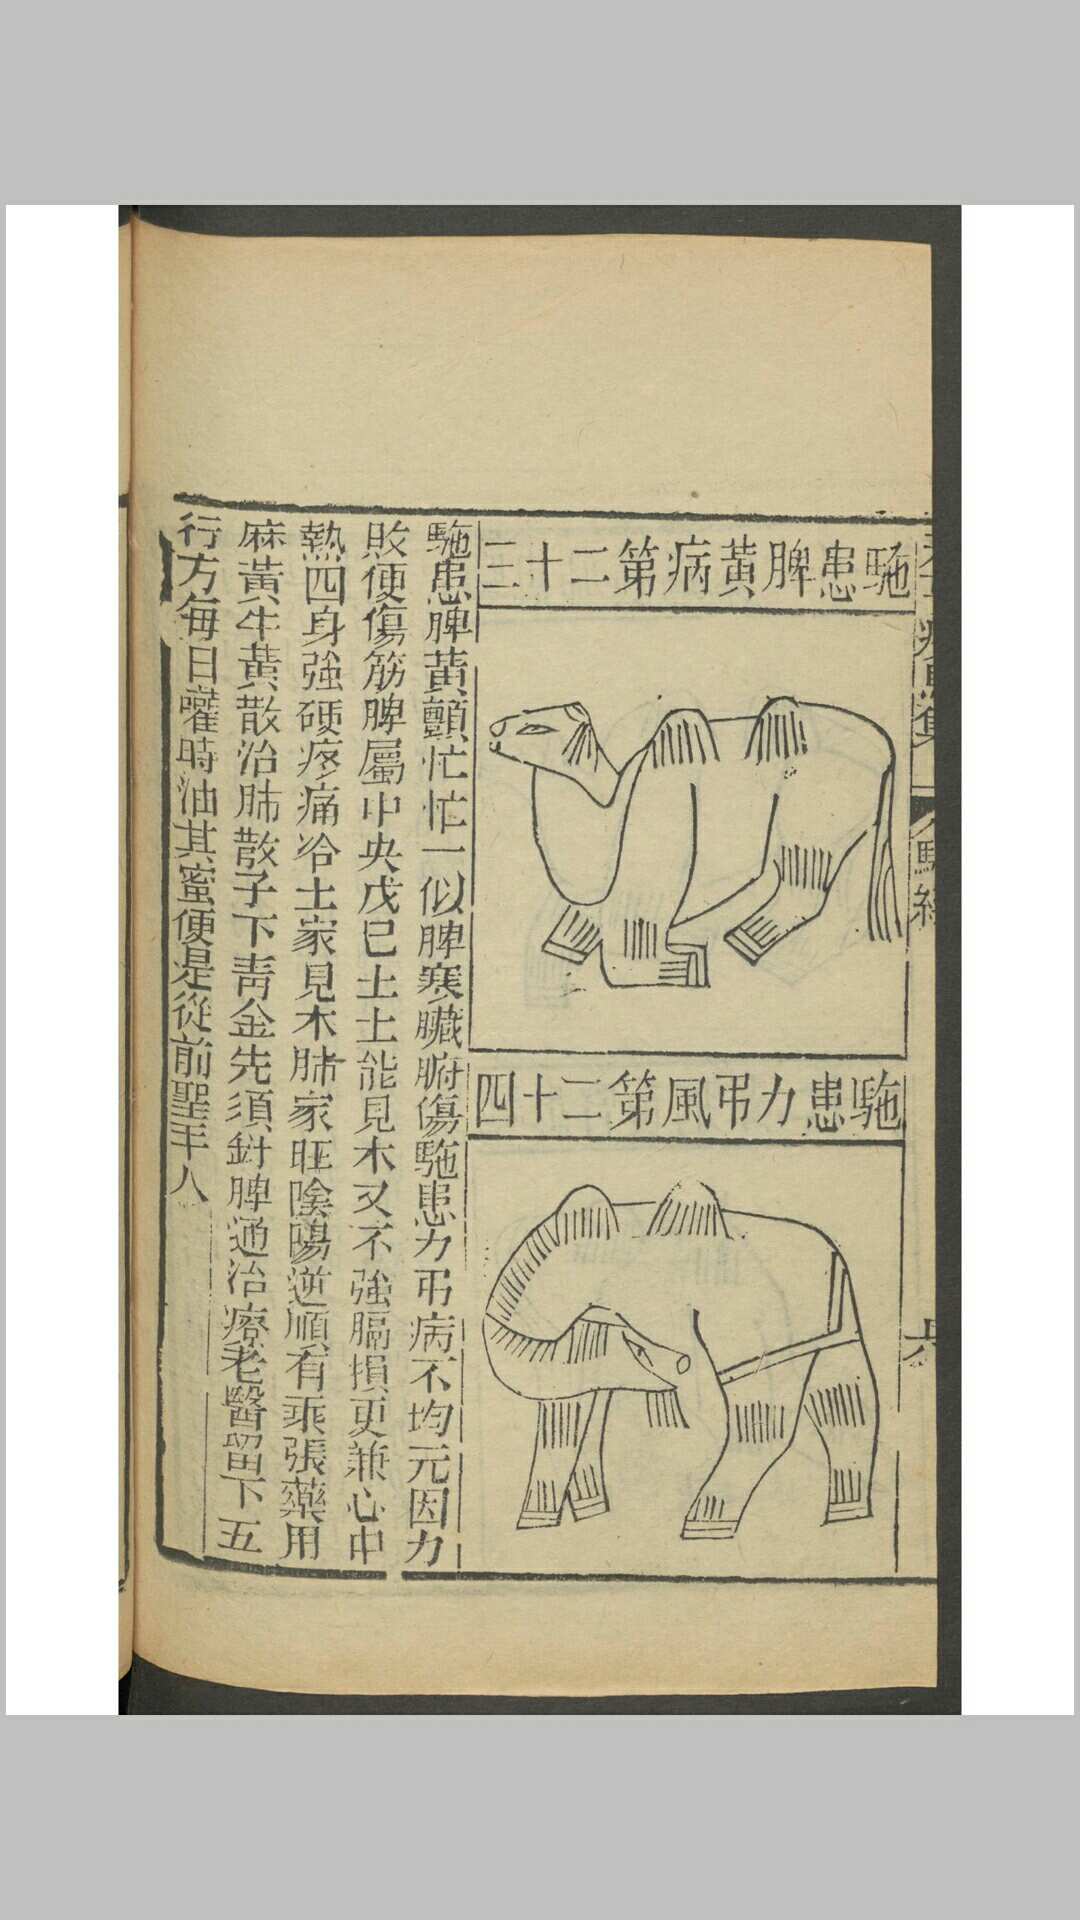 駞患脾黃病第二十三
駞患力弔風第二十四
駞患脾黃顫忙忙一似脾寒臟腑傷駞患力弔病不均元因力
敗便傷筋脾屬中央戊巳土土能見木又不強膈損更兼心中
熱四身強硬疼痛冷土家見木肺家旺陰陽逆順有乖張藥用
麻黃牛黃散治肺散子下青金先須針脾通治療老醫留下五
行方每日嚾時油其蜜便是從前聖王人